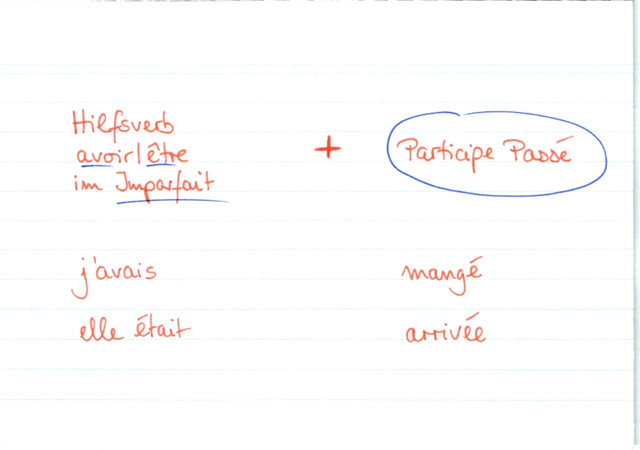 Hilfsverb
avoir/être
im Imparfait
+
Participe Passé
j'avais mangé
elle était arrivée